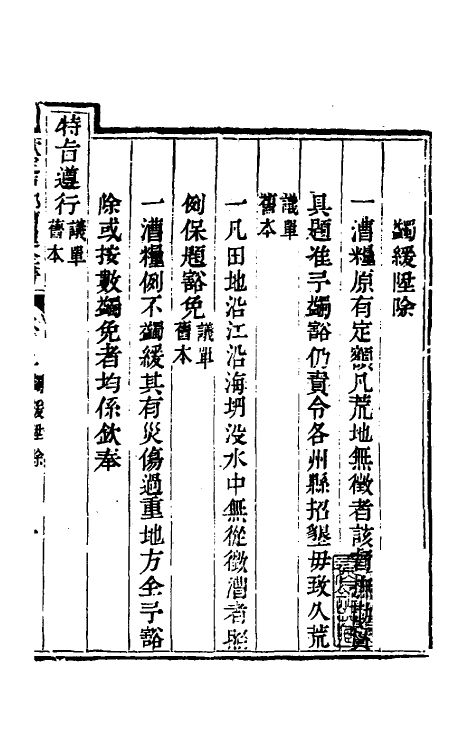 蠲緩陞除
一漕糧原有定額凡荒地無徵者該督撫勘實
具題准予蠲豁仍責令各州縣招墾毋致久荒
議單
舊本
一凡田地沿江沿海坍没水中無從徵漕者照
例保題豁免議單舊本
一漕糧例不蠲緩其有災傷過重地方全予豁
除或按數蠲免者均係欽奉
特旨遵行議單舊本
蠲緩陞除